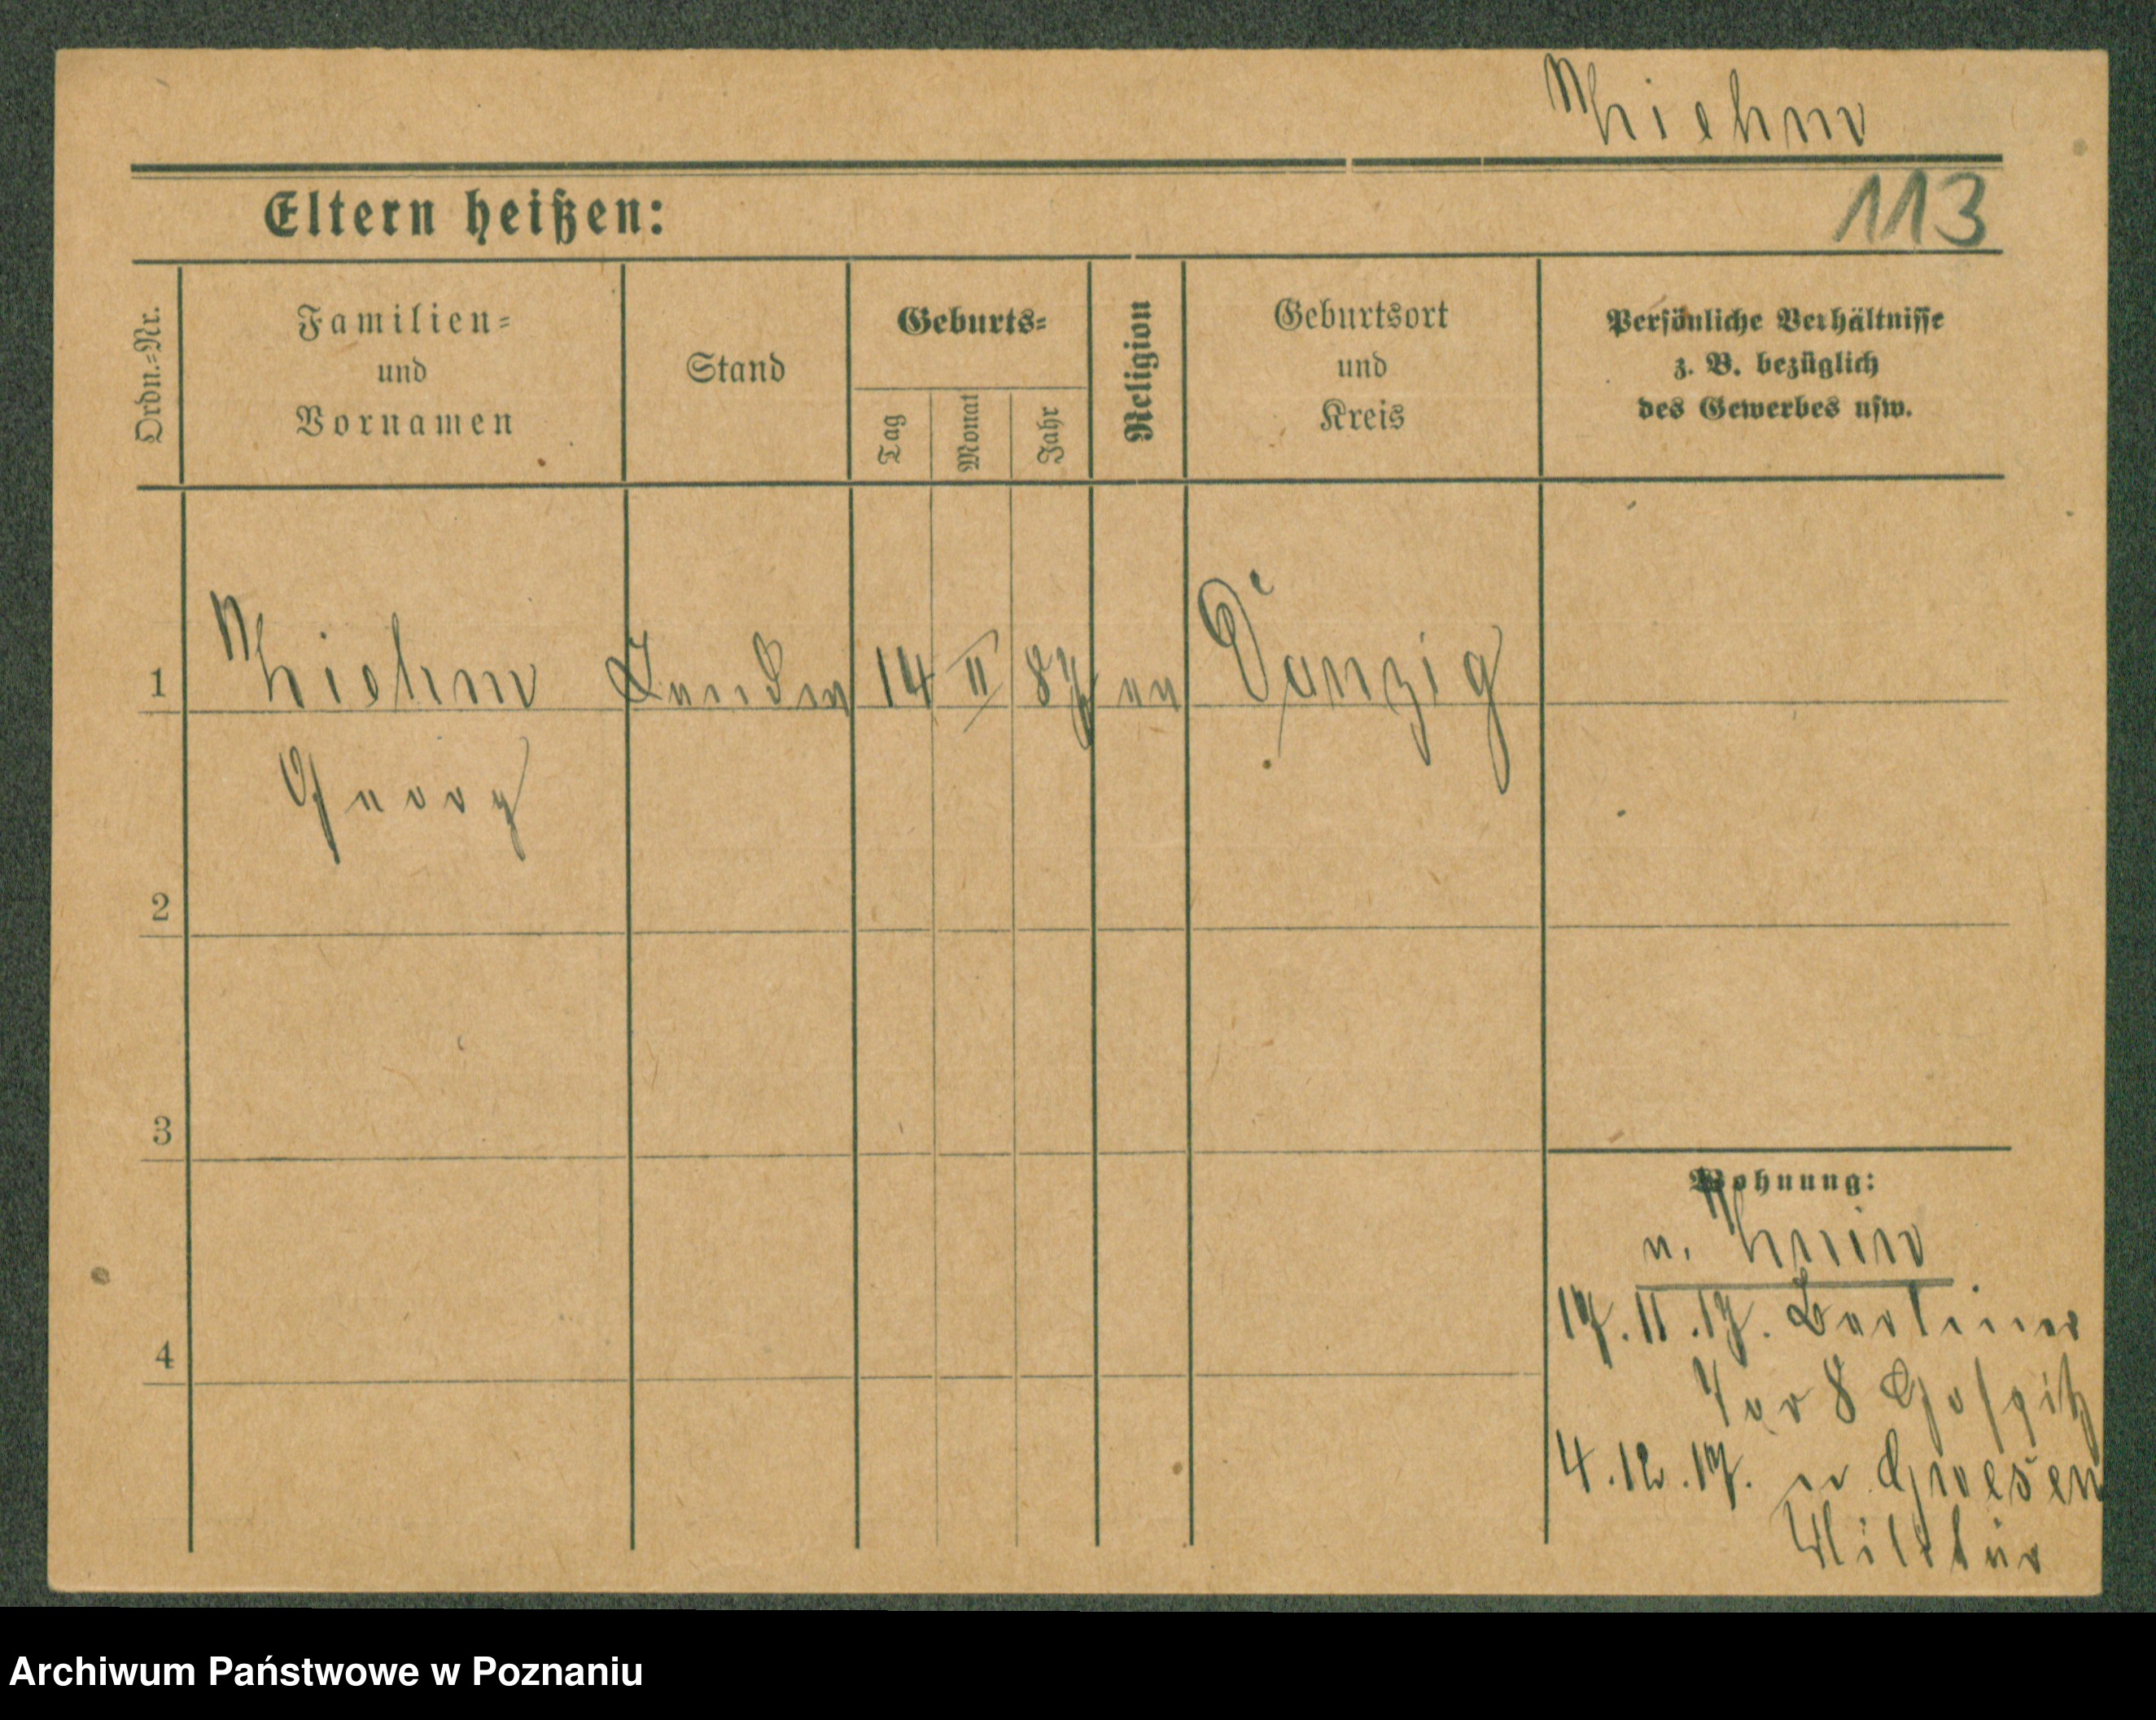 Thiehm
113
Eltern heißen:
Ordn.-Nr.
Familien-
und
Vornamen
Stand
Geburts-
Tag
Monat
Jahr
Religion
Geburtsort
und
Kreis
Persönliche Verhältnisse
z. B. bezüglich
des Gewerbes usw.
1 Thiehm 14 II 87 ev Danzig
Georg
2
3
4
Wohnung:
v.
17.11.17. Berliner
Tor 8 Hospitz
4.12.17. n Gnesen
Militär
Archiwum Państwowe w Poznaniu